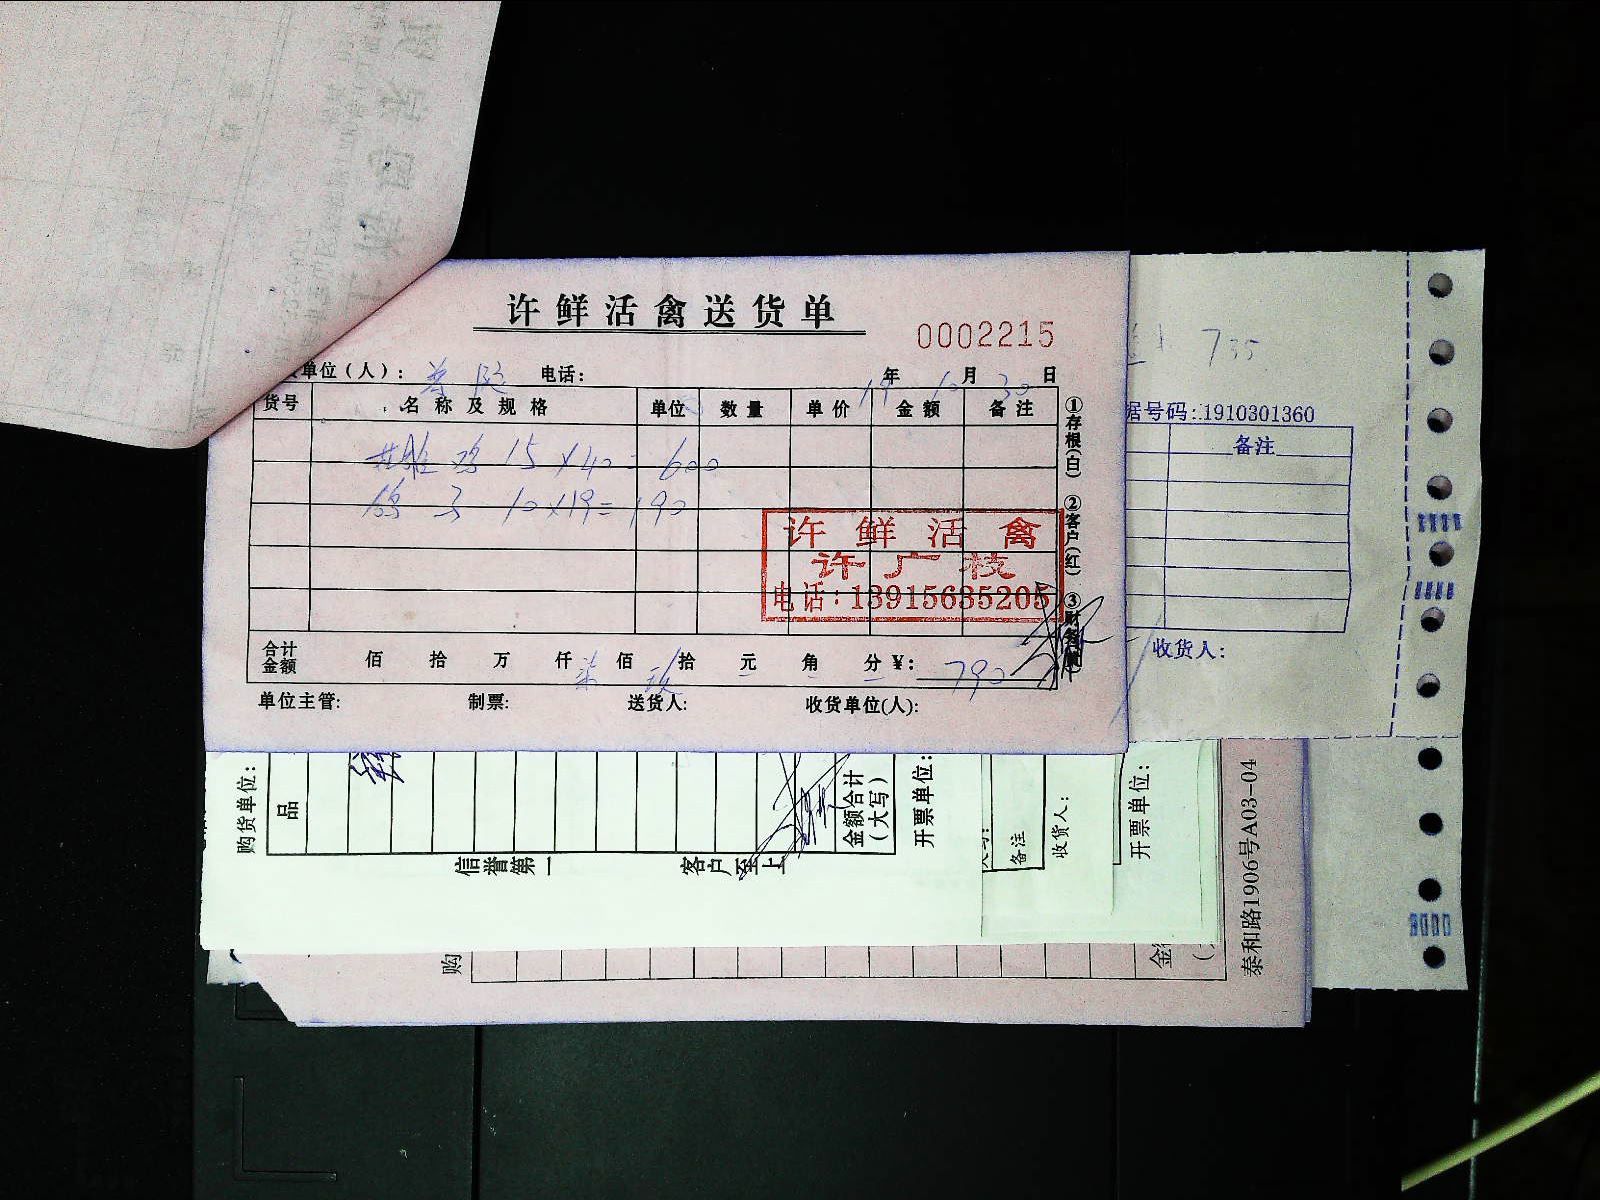 许鲜活禽送货单
0002215
单位(人): 电话: 19年10月30日
货号 名称及规格 单位 数量 单价 金额 备注
鸡 15×40=600
鸽子 10×19=190
许鲜活禽
许广枝
电话:13915635205
合计金额 佰 拾 万 仟 柒佰 玖拾 元 角 分 ¥: 790
单位主管: 制票: 送货人: 收货单位(人):
①存根(白) ②客户(红) ③财务(黄)
735
据号码:1910301360
备注
收货人:
购货单位:
品
金额合计(大写)
开票单位:
信誉第一 客户至上
备注
收货人:
开票单位:
购
泰和路1906号A03-04